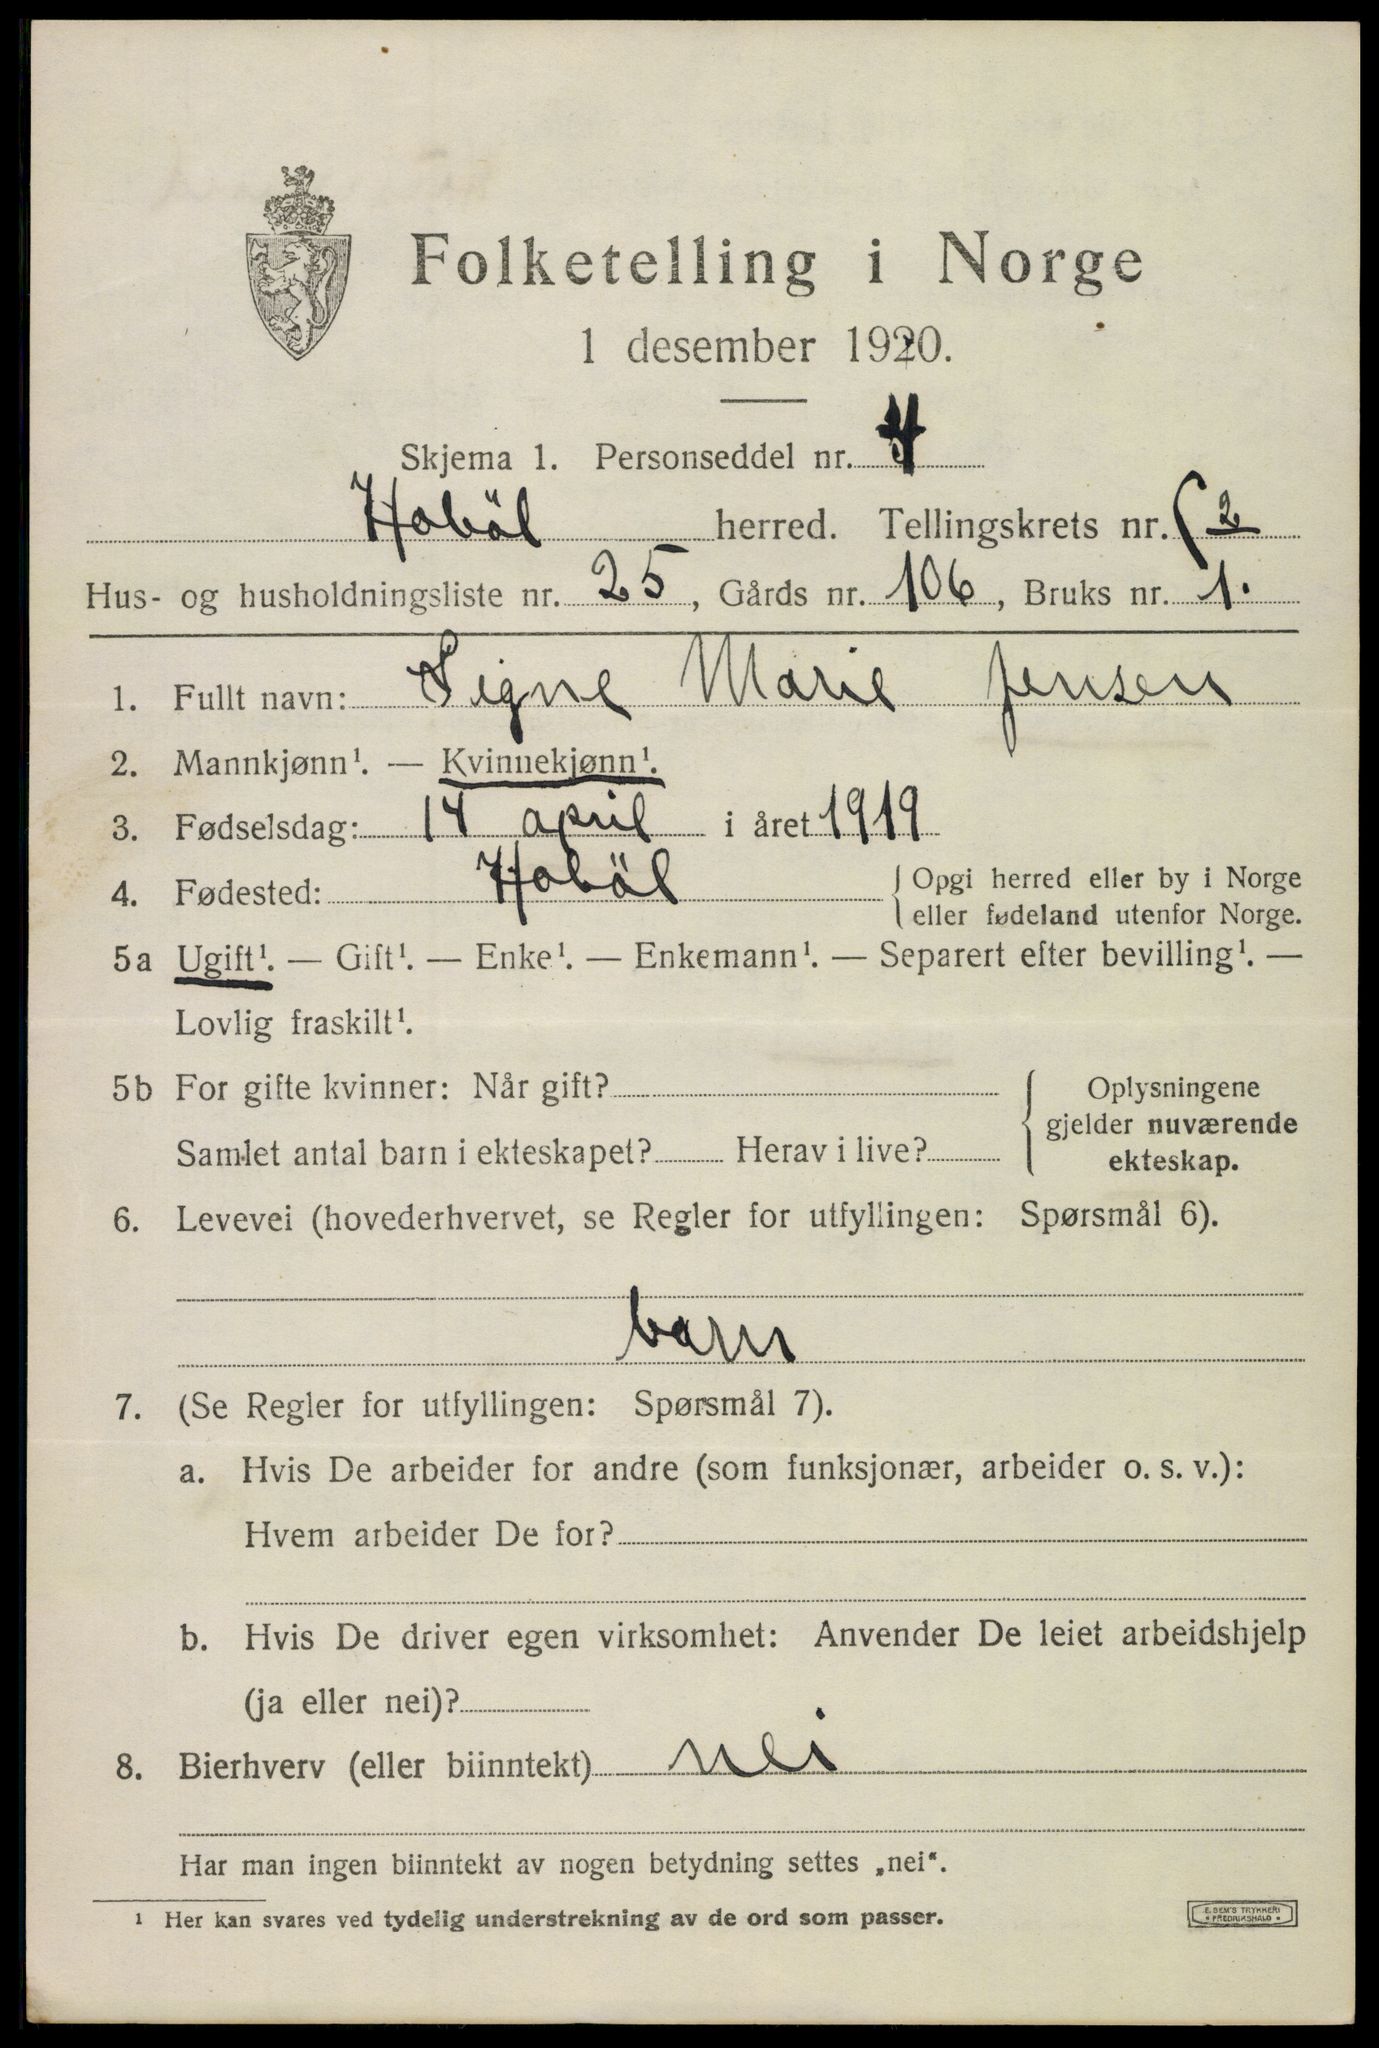 Folketelling i Norge
1 desember 1920.
Skjema 1. Personseddel nr. 4
Hobøl herred. Tellingskrets nr. 2
Hus- og husholdningsliste nr. 25, Gårds nr. 106, Bruks nr. 1.
1. Fullt navn: Signe Marie Jensen
2. Mannkjønn¹. — Kvinnekjønn¹.
3. Fødselsdag: 14 april i året 1919
4. Fødested: Hoböl { Opgi herred eller by i Norge
eller fødeland utenfor Norge.
5a Ugift¹. — Gift¹. — Enke¹. — Enkemann¹. — Separert efter bevilling¹. —
Lovlig fraskilt¹.
5b For gifte kvinner: Når gift? { Oplysningene
gjelder nuværende
Samlet antal barn i ekteskapet? Herav i live?
ekteskap.
6. Levevei (hovederhvervet, se Regler for utfyllingen: Spørsmål 6).
barn
7. (Se Regler for utfyllingen: Spørsmål 7).
a. Hvis De arbeider for andre (som funksjonær, arbeider o. s. v.):
Hvem arbeider De for?
b. Hvis De driver egen virksomhet: Anvender De leiet arbeidshjelp
(ja eller nei)?
8. Bierhverv (eller biinntekt) nei
Har man ingen biinntekt av nogen betydning settes „nei“.
¹ Her kan svares ved tydelig understrekning av de ord som passer.
E. SEM'S TRYKKERI
• FREDRIKSHALD •